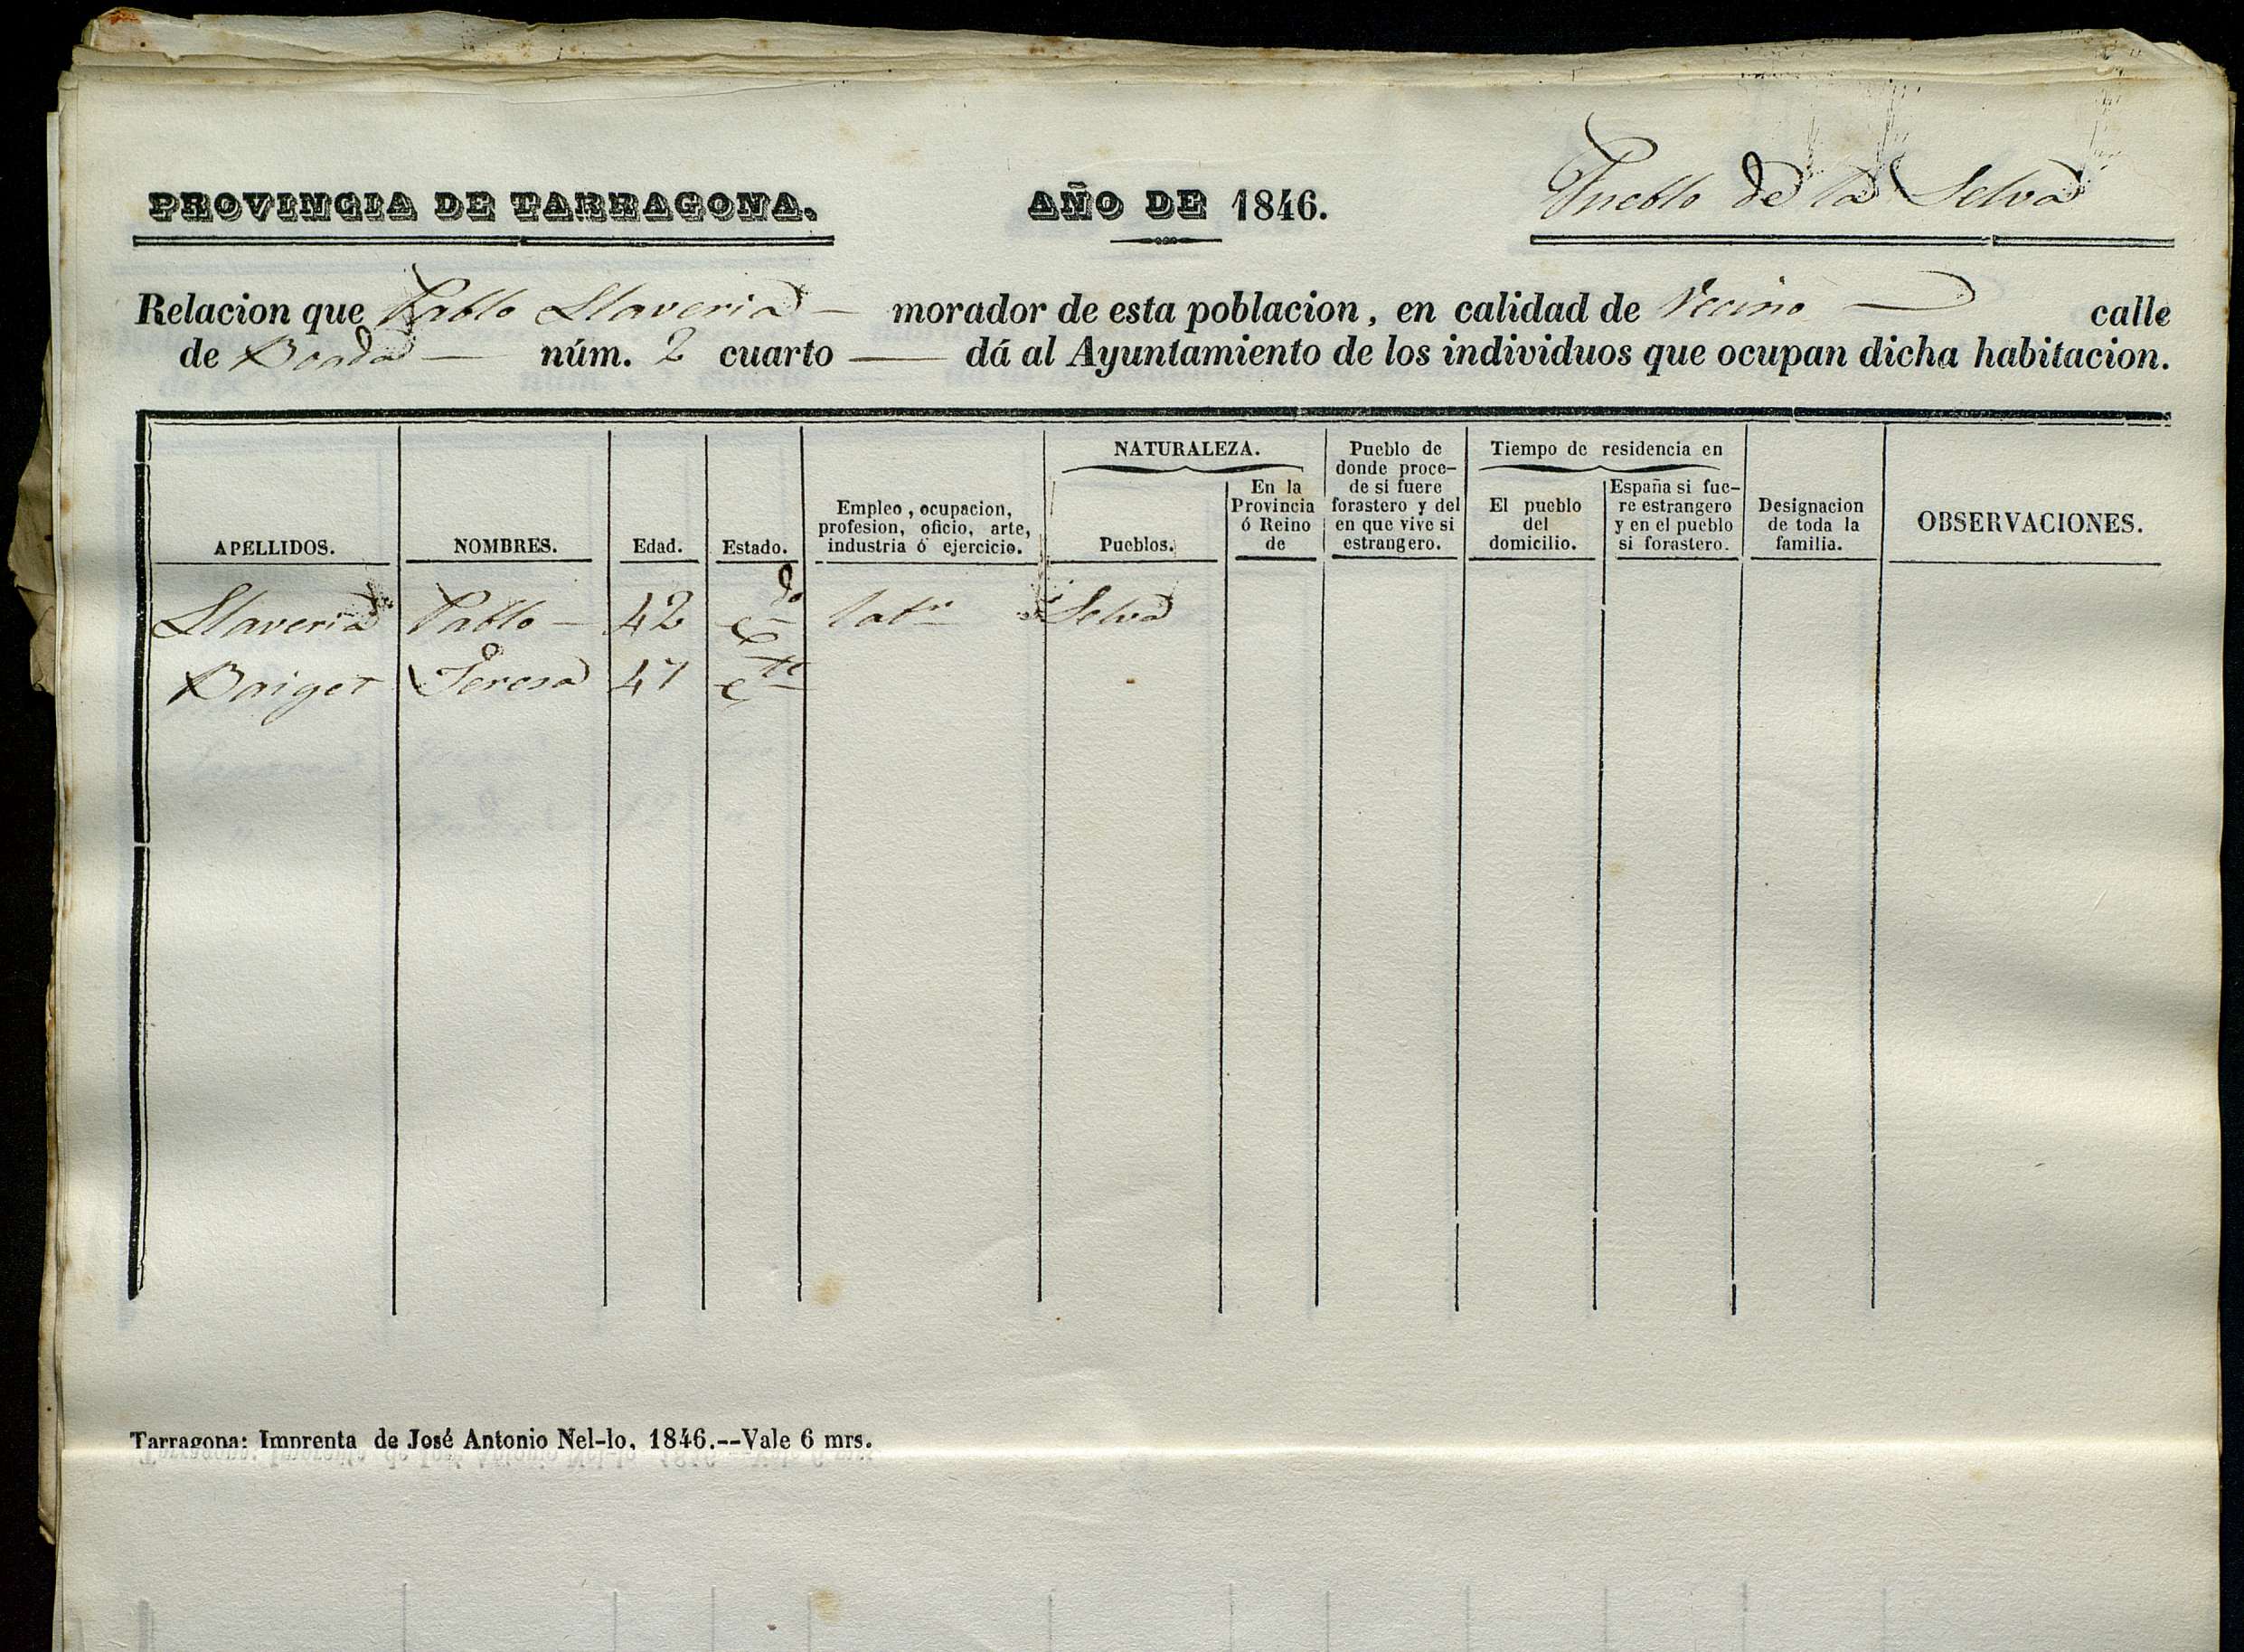 PROVINCIA DE TARRAGONA.
AÑO DE 1846.
Pueblo de la Selva
Relacion que Pablo Llaveria — morador de esta poblacion, en calidad de Vecino — calle
de núm. 2 cuarto — dá al Ayuntamiento de los individuos que ocupan dicha habitacion.
APELLIDOS.
NOMBRES.
Edad.
Estado.
Empleo, ocupacion,
profesion, oficio, arte,
industria ó ejercicio.
NATURALEZA.
Pueblos.
En la
Provincia
ó Reino
de
Pueblo de
donde proce-
de si fuere
forastero y del
en que vive si
estrangero.
Tiempo de residencia en
El pueblo
del
domicilio.
España si fue-
re estrangero
y en el pueblo
si forastero.
Designacion
de toda la
familia.
OBSERVACIONES.
Llaveria Pablo — 42 Cdo labr Selva
Baiget Teresa 47 Cte
Tarragona: Imprenta de José Antonio Nel-lo, 1846.--Vale 6 mrs.